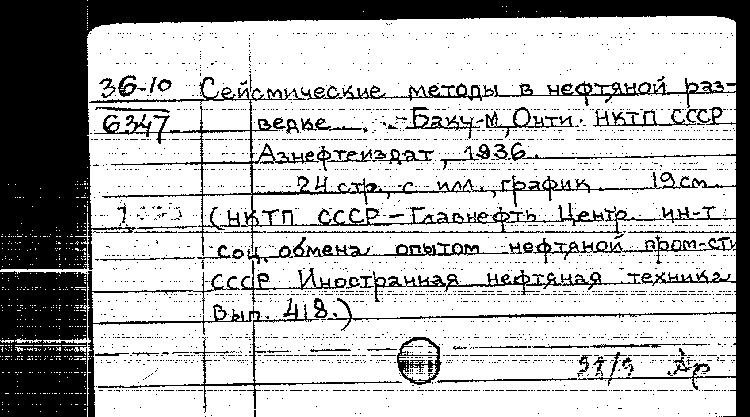 36-10 Сейсмические методы в нефтяной раз-
6347 ведке. - Баку-М, Онти. НКТП СССР
Азнефтеиздат, 1936.
24 стр., с илл., график. 19 см.
(НКТП СССР - Главнефть Центр. ин-т
соц. обмена опытом нефтяной пром-сти
СССР Иностранная нефтяная техника
Вып. 418.)
Ар